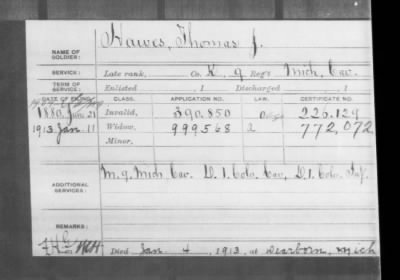 NAME OF SOLDIER: Hawes, Thomas J.
SERVICE: Late rank, Co. K, 9 Reg't Mich. Cav.
TERM OF SERVICE: Enlisted , 1 Discharged , 1
DATE OF FILING. CLASS. APPLICATION NO. LAW. CERTIFICATE NO.
1880, Jun. 21 Invalid, 390.850 225.129
1913 Jan. 11 Widow, 999568 2 772,072
Minor,
ADDITIONAL SERVICES: M. 9. Mich Cav. D. 1. Colo. Cav, D. 1. Colo. Inf.
REMARKS:
Died Jan. 4, 1913, at Dearborn, Mich